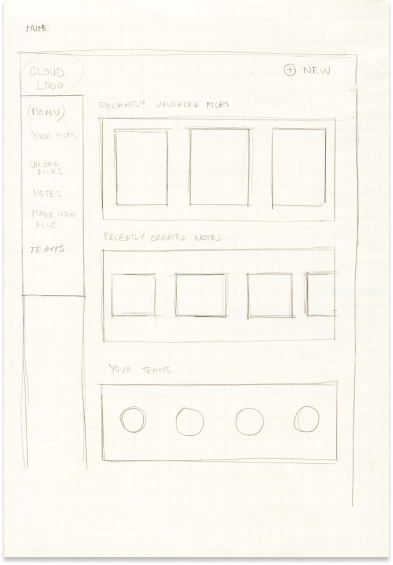 HOME
CLOUD
LOGO
⊕ NEW
(MENU)
YOUR FILES
UPLOAD
FILES
NOTES
MAKE NEW
FILE
TEAMS
RECENTLY UPLOADED FILES
RECENTLY CREATED NOTES
YOUR TEAMS